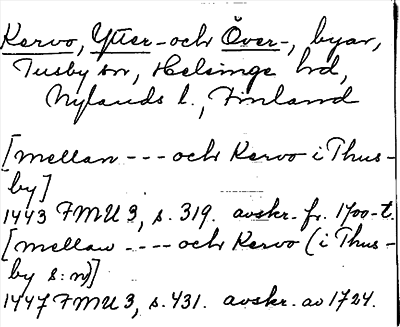 Kervo, Ytter- och Över-, byar,
Tusby sn, Helsinge hd,
Nylands l., Finland
[mellan --- och Kervo i Thus-
by]
1443 FMU 3, s. 319. avskr. fr. 1700-t.
[mellan ---- och Kervo (i Thus-
by s:n)]
1447 FMU 3, s. 431. avskr. av 1724.